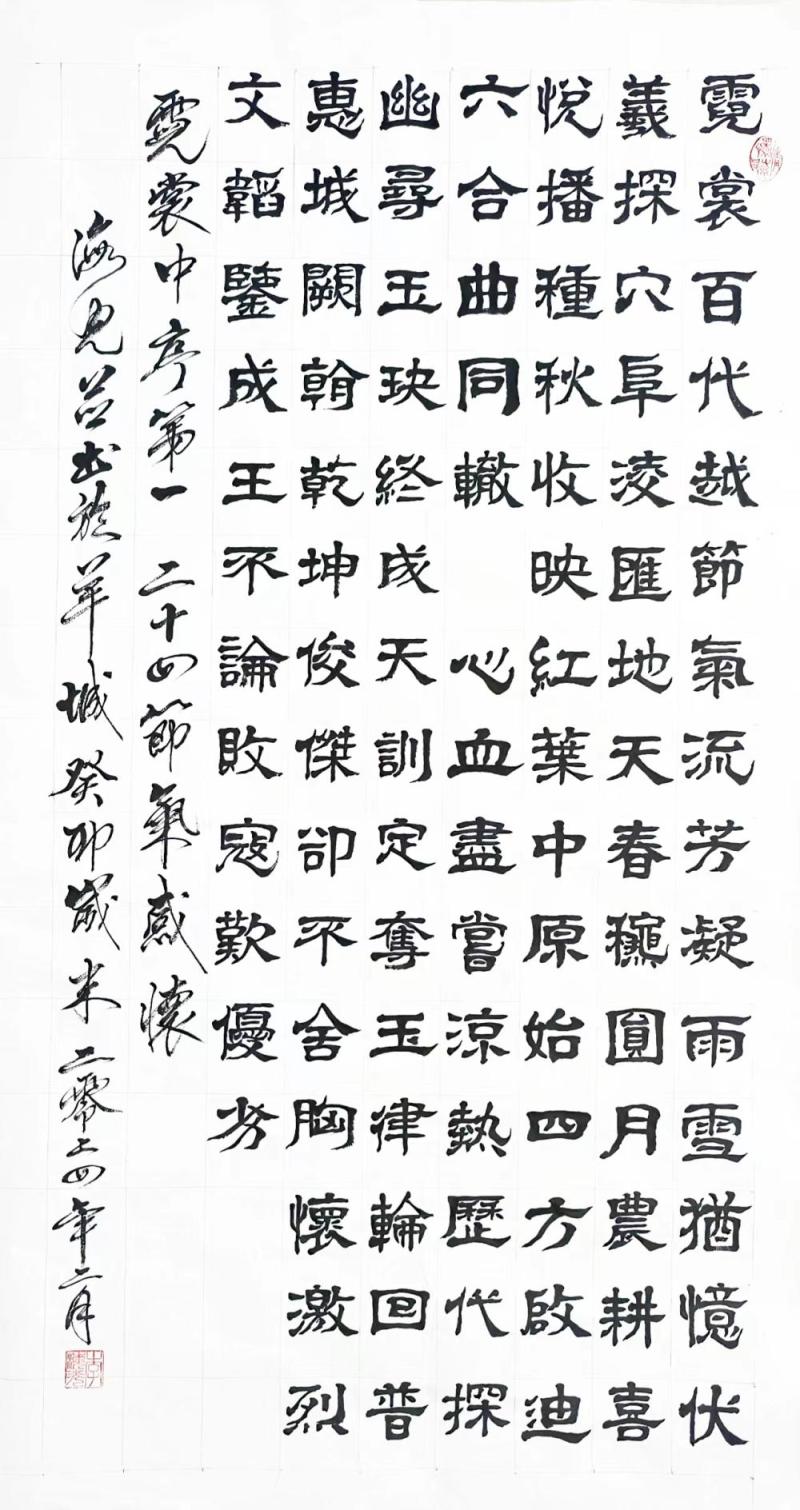 霓裳百代越節氣流芳凝雨雪猶憶伏
羲探穴阜凌匯地天春穐圓月農耕喜
悅播種秋收映紅葉中原始四方啟迪
六合曲同轍 心血盡嘗涼熱歷代探
幽尋玉玦終成天訓定奪玉律輪回普
惠城闕翰乾坤俊傑卻不舍胸懷激烈
文韜鑒成王不論敗寇歎優劣
霓裳中序第一 二十四節氣感懷
海光並书於羊城癸卯歲末二零二四年二月